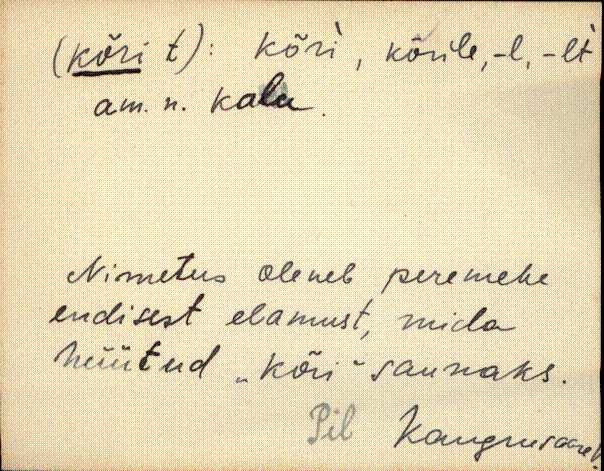 (kõri t): kõri̬, kõrile, -l, -lt̀
am. n. kalu.
Nimetus oleneb peremehe
endisest elamust, mida
hüütud „kõri" saunaks.
Pil Kangrusaare